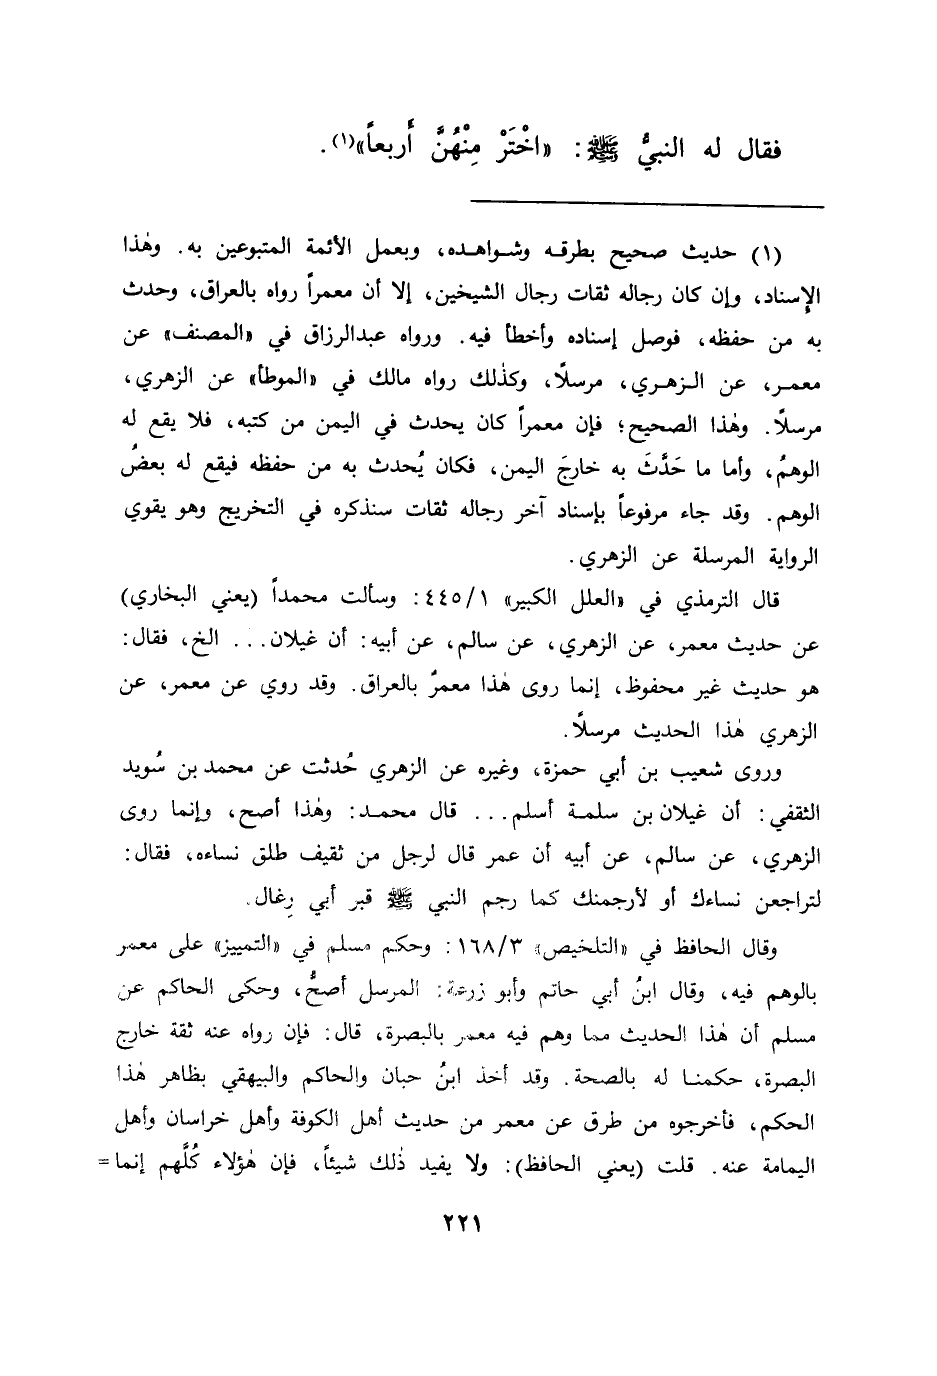 فقال له النبيُّ ﷺ: «اخْتَرْ مِنْهُنَّ أَربعاً»(١).
(١) حديث صحيح بطرقه وشواهده، وبعمل الأئمة المتبوعين به. وهٰذا
الإسناد، وإن كان رجاله ثقات رجال الشيخين، إلا أن معمراً رواه بالعراق، وحدث
به من حفظه، فوصل إسناده وأخطأ فيه. ورواه عبدالرزاق في «المصنف» عن
معمر، عن الزهري، مرسلًا، وكذٰلك رواه مالك في «الموطأ» عن الزهري،
مرسلًا. وهٰذا الصحيح؛ فإن معمراً كان يحدث في اليمن من كتبه، فلا يقع له
الوهمُ، وأما ما حَدَّثَ به خارجَ اليمن، فكان يُحدث به من حفظه فيقع له بعضُ
الوهم. وقد جاء مرفوعاً بإسناد آخر رجاله ثقات سنذكره في التخريج وهو يقوي
الرواية المرسلة عن الزهري.
قال الترمذي في «العلل الكبير» ٤٤٥/١: وسألت محمداً (يعني البخاري)
عن حديث معمر، عن الزهري، عن سالم، عن أبيه: أن غيلان... الخ، فقال:
هو حديث غير محفوظ، إنما روى هٰذا معمرٌ بالعراق. وقد روي عن معمر، عن
الزهري هٰذا الحديث مرسلًا.
وروى شعيب بن أبي حمزة، وغيره عن الزهري حُدثت عن محمد بن سُويد
الثقفي: أن غيلان بن سلمة أسلم... قال محمد: وهٰذا أصح، وإنما روى
الزهري، عن سالم، عن أبيه أن عمر قال لرجل من ثقيف طلق نساءه، فقال:
لتراجعن نساءك أو لأرجمنك كما رجم النبي ﷺ قبر أبي رِغال.
وقال الحافظ في «التلخيص» ١٦٨/٣: وحكم مسلم في «التمييز» على معمر
بالوهم فيه، وقال ابنُ أبي حاتم وأبو زرعة: المرسل أصحُّ، وحكى الحاكم عن
مسلم أن هٰذا الحديث مما وهم فيه معمر بالبصرة، قال: فإن رواه عنه ثقة خارج
البصرة، حكمنا له بالصحة. وقد أخذ ابنُ حبان والحاكم والبيهقي بظاهر هٰذا
الحكم، فأخرجوه من طرق عن معمر من حديث أهل الكوفة وأهل خراسان وأهل
اليمامة عنه. قلت (يعني الحافظ): ولا يفيد ذٰلك شيئاً، فإن هٰؤلاء كُلَّهم إنما =
٢٢١